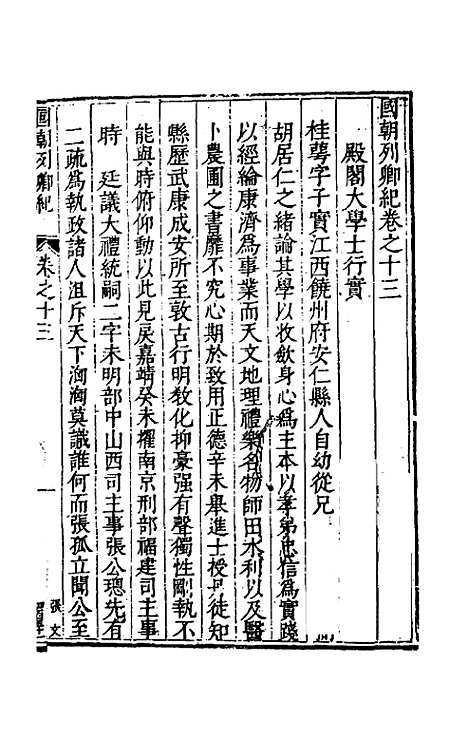 國朝列卿紀卷之十三
殿閣大學士行實
桂萼字子實江西饒州府安仁縣人自幼從兄
胡居仁之緒論其學以收斂身心爲主本以孝弟忠信爲實踐
以經綸康濟爲事業而天文地理禮樂名物師田水利以及醫
卜農圃之書靡不究心期於致用正德辛未舉進士授丹徒知
縣歷武康成安所至敦古行明敎化抑豪强有聲獨性剛執不
能與時俯仰動以此見戾嘉靖癸未擢南京刑部福建司主事
時 廷議大禮統嗣二字未明部中山西司主事張公璁先有
二疏爲執政諸人沮斥天下洶洶莫識誰何而張孤立聞公至
國朝列卿紀
卷之十三
一
張文